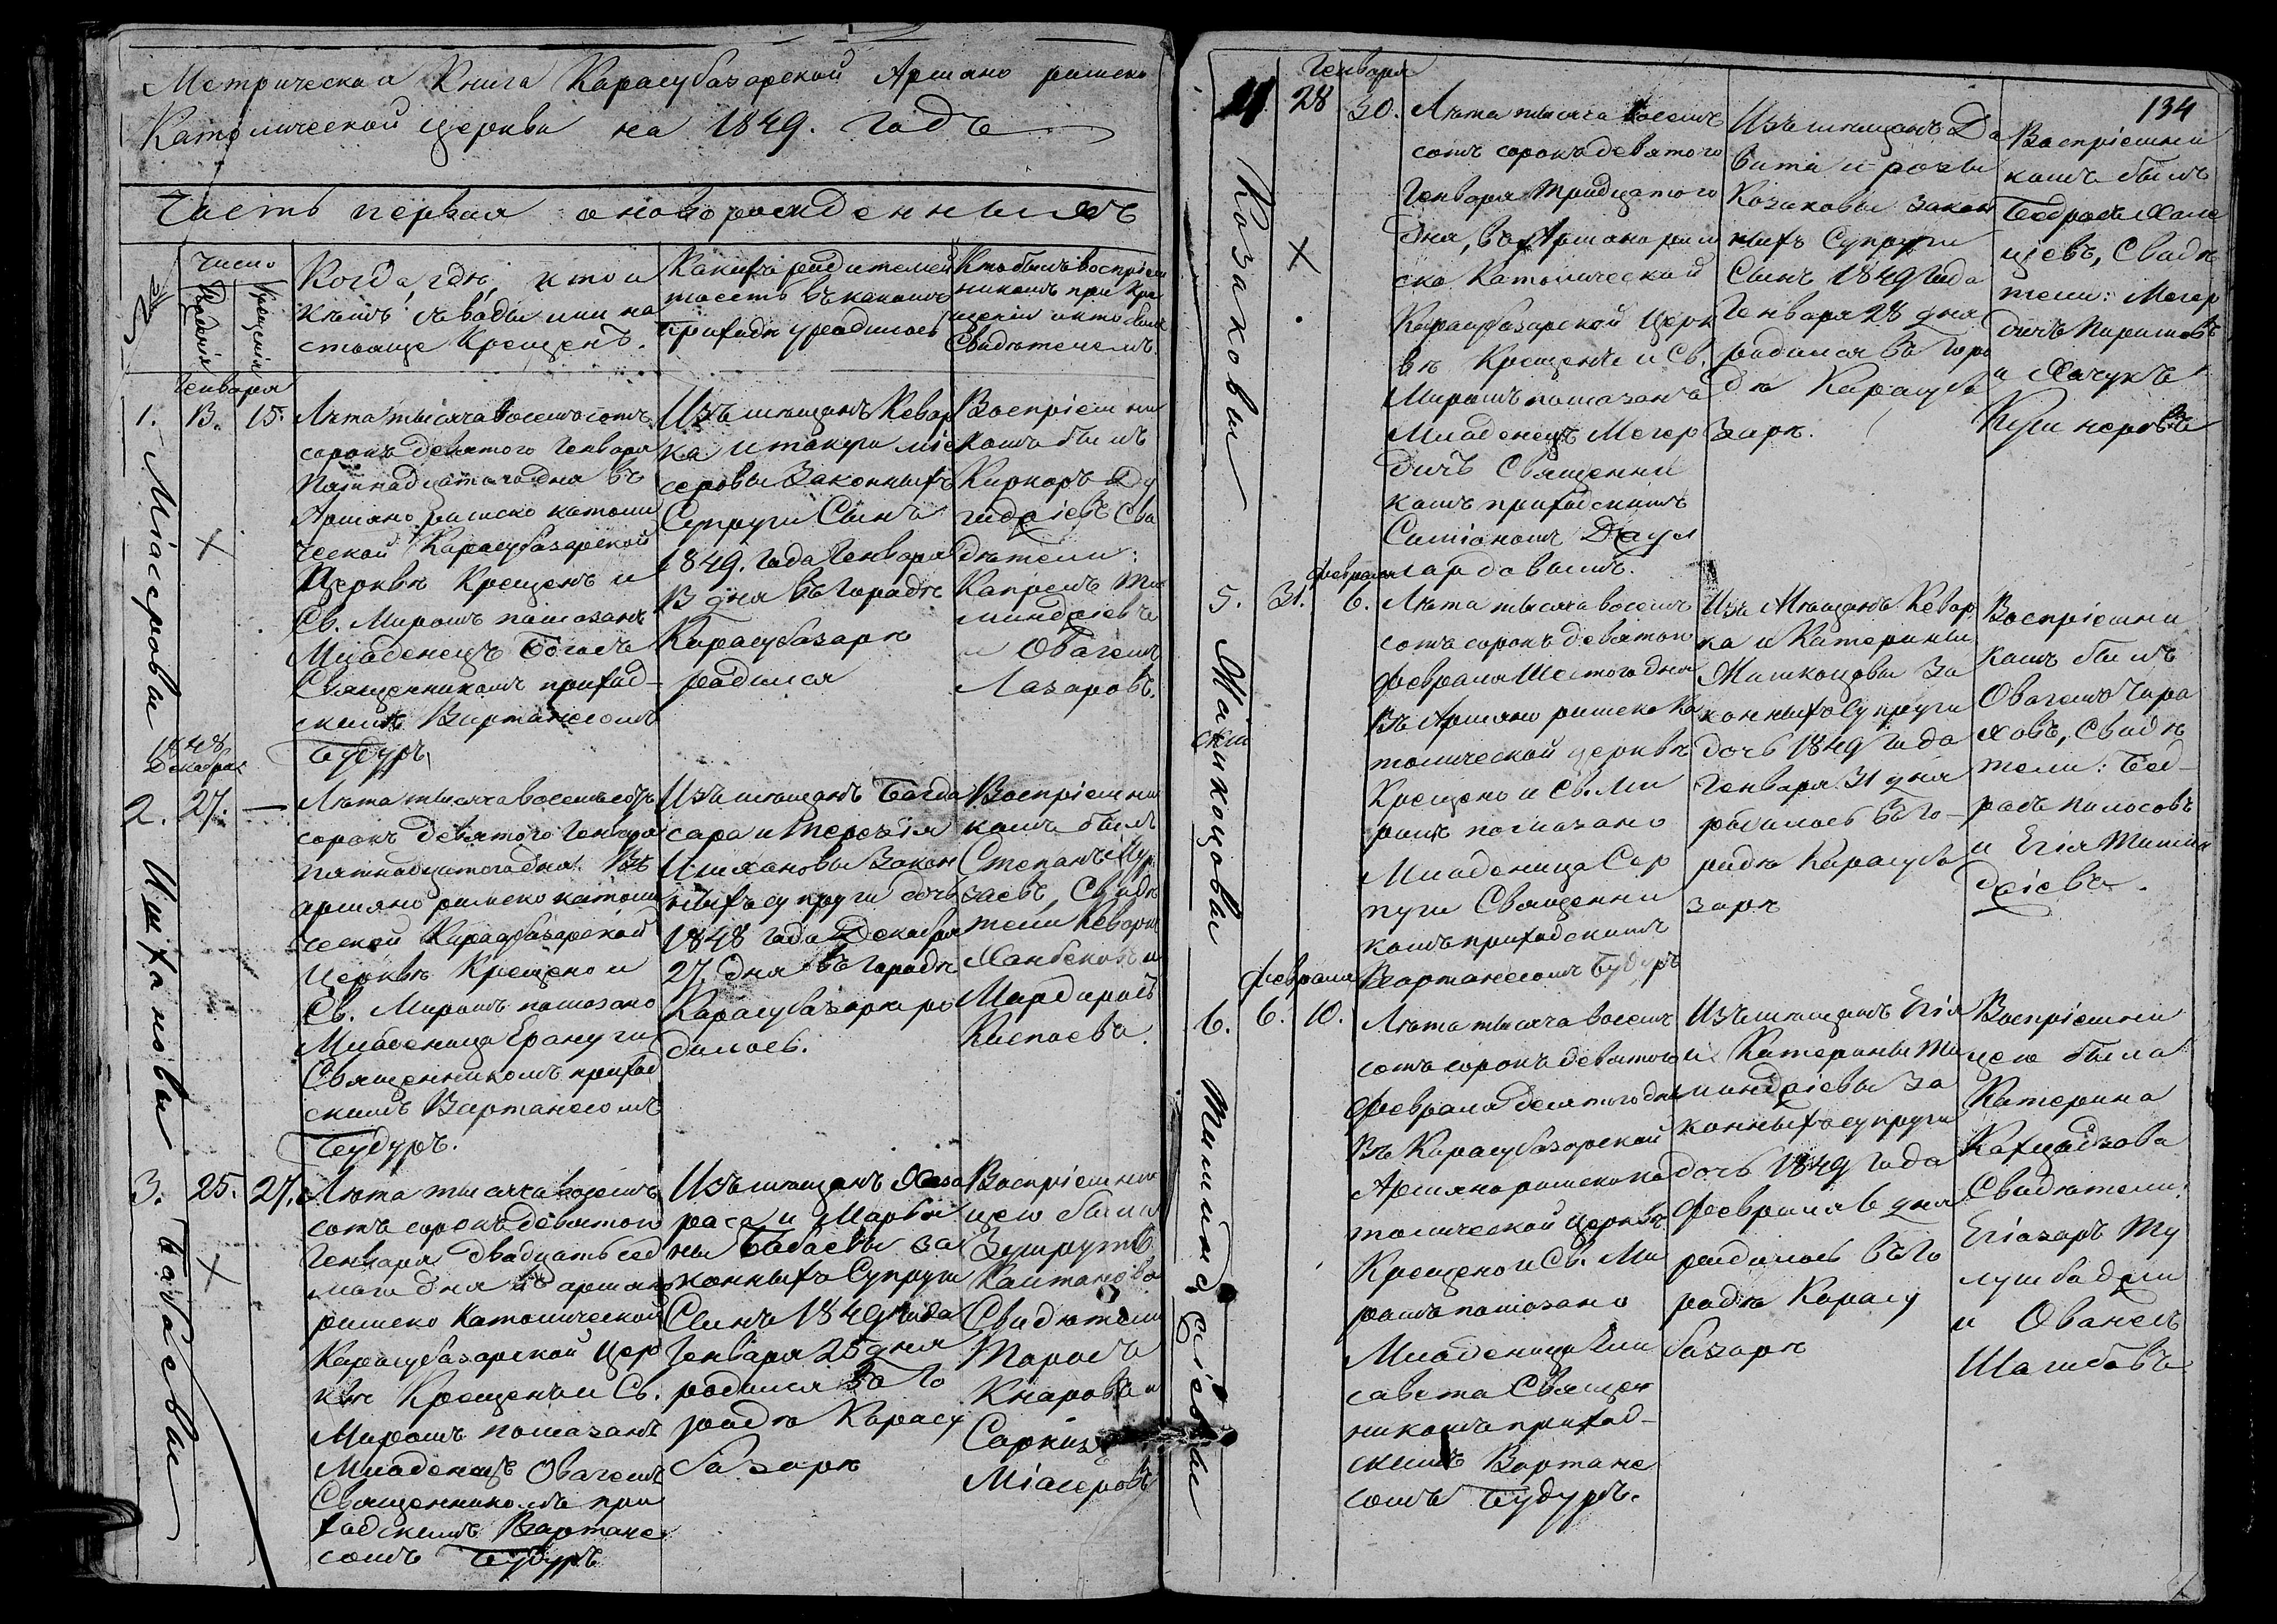 Метрическая Книга Карасубазарской Армяно римско
Католической церкви на 1849. годъ
Часть первая о новорожденныхъ
Число
Рожденія
Крещенія
Когда, гдѣ, кто и
кѣмъ съ воды или на
стояще Крещенъ.
Какихъ родителей
и въ какомъ
приходѣ родилось
Кто былъ воспріем
никомъ при кре
щеніи и кто былъ
Свидѣтелемъ.
Генваря
1.
13.
15.
Міасеровы
Лѣта тысяча восемь сотъ
сорокъ девятого Генваря
Пятнадцатого дня въ
Армяно римско католи
ческой Карасубазарской
Церквѣ Крещенъ и
Св. Миромъ помазанъ
Младенецъ Богосъ
Священникомъ приход-
скимъ Вартаносомъ
Будуръ
Изъ мѣщанъ Кевор
ка и такуги Міа
серовы Законныхъ
Супруги Сынъ
1849. Года Генваря
13 дня въ Городѣ
Карасубазарѣ
родился
Воспріемни
комъ былъ
Киркоръ Ду
гидзіевъ Сви
дѣтели:
Капрелъ Ти
миндзіевъ
и Овагемъ
Лазаровъ.
1848
Декабря
2.
27.
—
Ишхановы
Лѣта тысяча восемь сотъ
сорокъ девятого Генваря
пятнадцатого дня Въ
армяно римско католи
ческой Карасубазарской
Церквѣ Крещено и
Св. Миромъ помазано
Младеница Ерануги
Священникомъ приход
скимъ Вартаносомъ
Будуръ.
Изъ мѣщанъ Багда
сара и Терезія
Ишхановы Закон
ныхъ супруги дочь
1848 Года Декабря
27. дня въ городѣ
Карасубазарѣ ро
дилось.
Воспріемни
комъ былъ
Степанъ Мур
заевъ, Свидѣ
тели Кеворкъ
Ханбековъ и
Мардиросъ
Каспаевъ.
3.
25.
27.
Бабаевы
Лѣта тысяча восемь
сотъ сорокъ девятого
Генваря двадцать сед
маго дня въ армяно
римско Католической
Карасубазарской Цер
квѣ Крещенъ и Св.
Миромъ помазанъ
Младенецъ Овагемъ
Священникомъ при
ходскимъ Вартано
сомъ Будуръ
Изъ мѣщанъ Хаза
роса и Марья
ны Бабаевы за
конныхъ Супруги
Сынъ 1849 Года
Генваря 25 дня
родился въ Го
родѣ Карасу
базарѣ
Воспріемни
цею была
Зумрутъ
Калтанова
Свидѣтели
Торосъ
Кнаровъ и
Саркизъ
Міасеровъ
134
Генваря
4
28
30.
Козаковы
Лѣта тысяча восемь
сотъ сорокъ девятого
Генваря тридцатого
дня, въ Армяно рим
ско Католической
Карасубазарской Церк
вѣ Крещенъ и Св.
Миромъ помазанъ
Младенецъ Мегер
дичъ Священни
комъ приходскимъ
Симіономъ Даул
лардовымъ.
Изъ мѣщанъ Да
вита и розы
Козаковы закон
ныхъ Супруги
Сынъ 1849 Года
Генваря 28 дня
родился въ Горо
дѣ Карасуба
зарѣ.
Воспріемни
комъ былъ
Бедросъ Хале
щіевъ, Свидѣ
тели: Мегер
дичъ Париловъ
и Хачукъ
Февраля
5.
31.
6.
Майикоцовы
Лѣта тысяча восемь
сотъ сорокъ девятого
Февраля Шестого дня
Въ Армяно римско Ка
толической церквѣ
Крещено и Св. Ми
ромъ помазано
Младеница Сер
пуги Священни
комъ приходскимъ
Вартаносомъ Будуръ
Изъ Мѣщанъ Кевор
ка и Катерины
Маикоцовы За
конныхъ Супруги
дочь 1849 Года
Генваря 31 дня
родилось въ Го-
родѣ Карасуба
зарѣ
Воспріемни
комъ былъ
Овагемъ Чара
ховъ, Свидѣ
тели: Бед-
росъ Палосовъ
и Егія Тимин
дзіевъ.
Февраля
6.
6.
10.
Тиминдзіевы
Лѣта тысяча восемь
сотъ сорокъ девятого
Февраля десятого дня
Въ Карасубазарской
Армяно римско ка
толической Церквѣ
Крещено и Св. Ми
ромъ помазано
Младеница Ели
савета Священ
никомъ приход-
скимъ Вартано
сомъ Будуръ.
Изъ мѣщанъ Егія
и Катерины Ти
миндзіевы за
конныхъ супруги
дочь 1849 Года
Февраля 6 дня
родилось въ Го
родѣ Карасу
базарѣ
Воспріемни
цею была
Катерина
Свидѣтели:
Егіазаръ Ту
лумбаджи
и Ованесъ